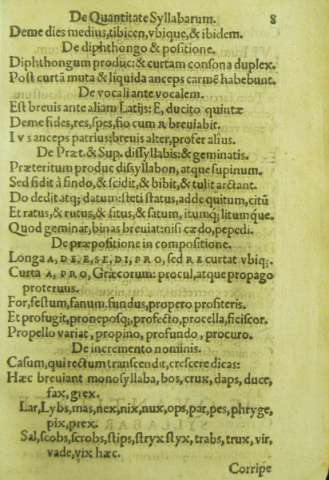 De Quantitate Syllabarum. 8
Deme dies medius, tibicen, vbique, & ibidem.
De diphthongo & positione.
Diphthongum produc: & curtam consona duplex.
Post curtā muta & liquida anceps carmē habebunt.
De vocali ante vocalem.
Est breuis ante aliam Latijs: E, ducito quintæ
Deme fides, res, spes, fio cum R breuiabit.
IVS anceps patrius: breuis alter, profer alius.
De Præt. & Sup. dissyllabis: & geminatis.
Præteritum produc dissyllabon, atque supinum.
Sed fidit à findo, & scidit, & bibit, & tulit arctant.
Do dedit atq; datum: steti status, adde quitum, citū
Et ratus, & rutus, & situs, & satum, itumq; litumque.
Quod geminat, binas breuiat: nisi cædo, pepedi.
De præpositione in compositione.
Longa A, DE, E, SE, DI, PRO, sed RE curtat vbiq;.
Curta A, PRO, Græcorum: procul, atque propago
proteruus.
For, festum, fanum, fundus, propero profiteris.
Et profugit, proneposq;, profecto, procella, ficiscor.
Propello variat, propino, profundo, procuro.
De incremento nominis.
Casum, qui rectum transcendit, crescere dicas:
Hæc breuiant monosyllaba, bos, crux, daps, duce,
fax, grex.
Lar, Lybs, mas, nex, nix, nux, ops, par, pes, phryge,
pix, prex.
Sal, scobs, scrobs, stips, stryx styx, trabs, trux, vir,
vade, vix hæc.
Corripe